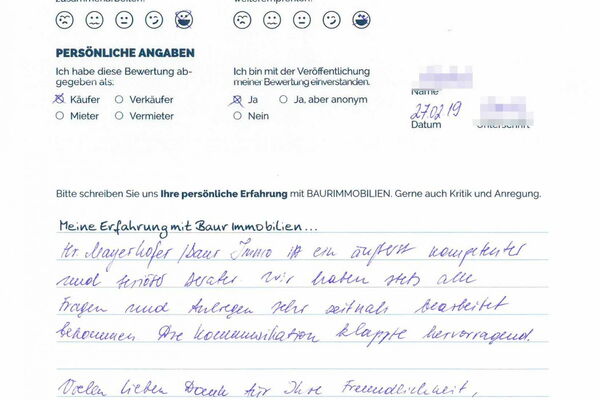 zusammenarbeiten.
weiterempfehlen.
PERSÖNLICHE ANGABEN
Ich habe diese Bewertung ab-
gegeben als:
Käufer Verkäufer
Mieter Vermieter
Ich bin mit der Veröffentlichung
meiner Bewertung einverstanden.
Ja Ja, aber anonym
Nein
Name
27.02.19
Datum Unterschrift
Bitte schreiben Sie uns Ihre persönliche Erfahrung mit BAURIMMOBILIEN. Gerne auch Kritik und Anregung.
Meine Erfahrung mit Baur Immobilien...
Hr Mayerhofer / Baur Immo ist ein äußerst kompetenter
und seriöser Berater. Wir haben stets alle
Fragen und Anliegen sehr zeitnah bearbeitet
bekommen Die Kommunikation klappte hervorragend.
Vielen lieben Dank für Ihre Freundlichkeit,